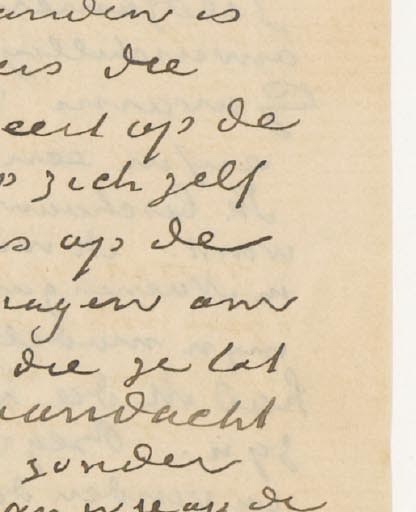 anden is
die
eert op de
zich zelf
s op de
ragen aan
die ze tot
aandacht
zonder
de